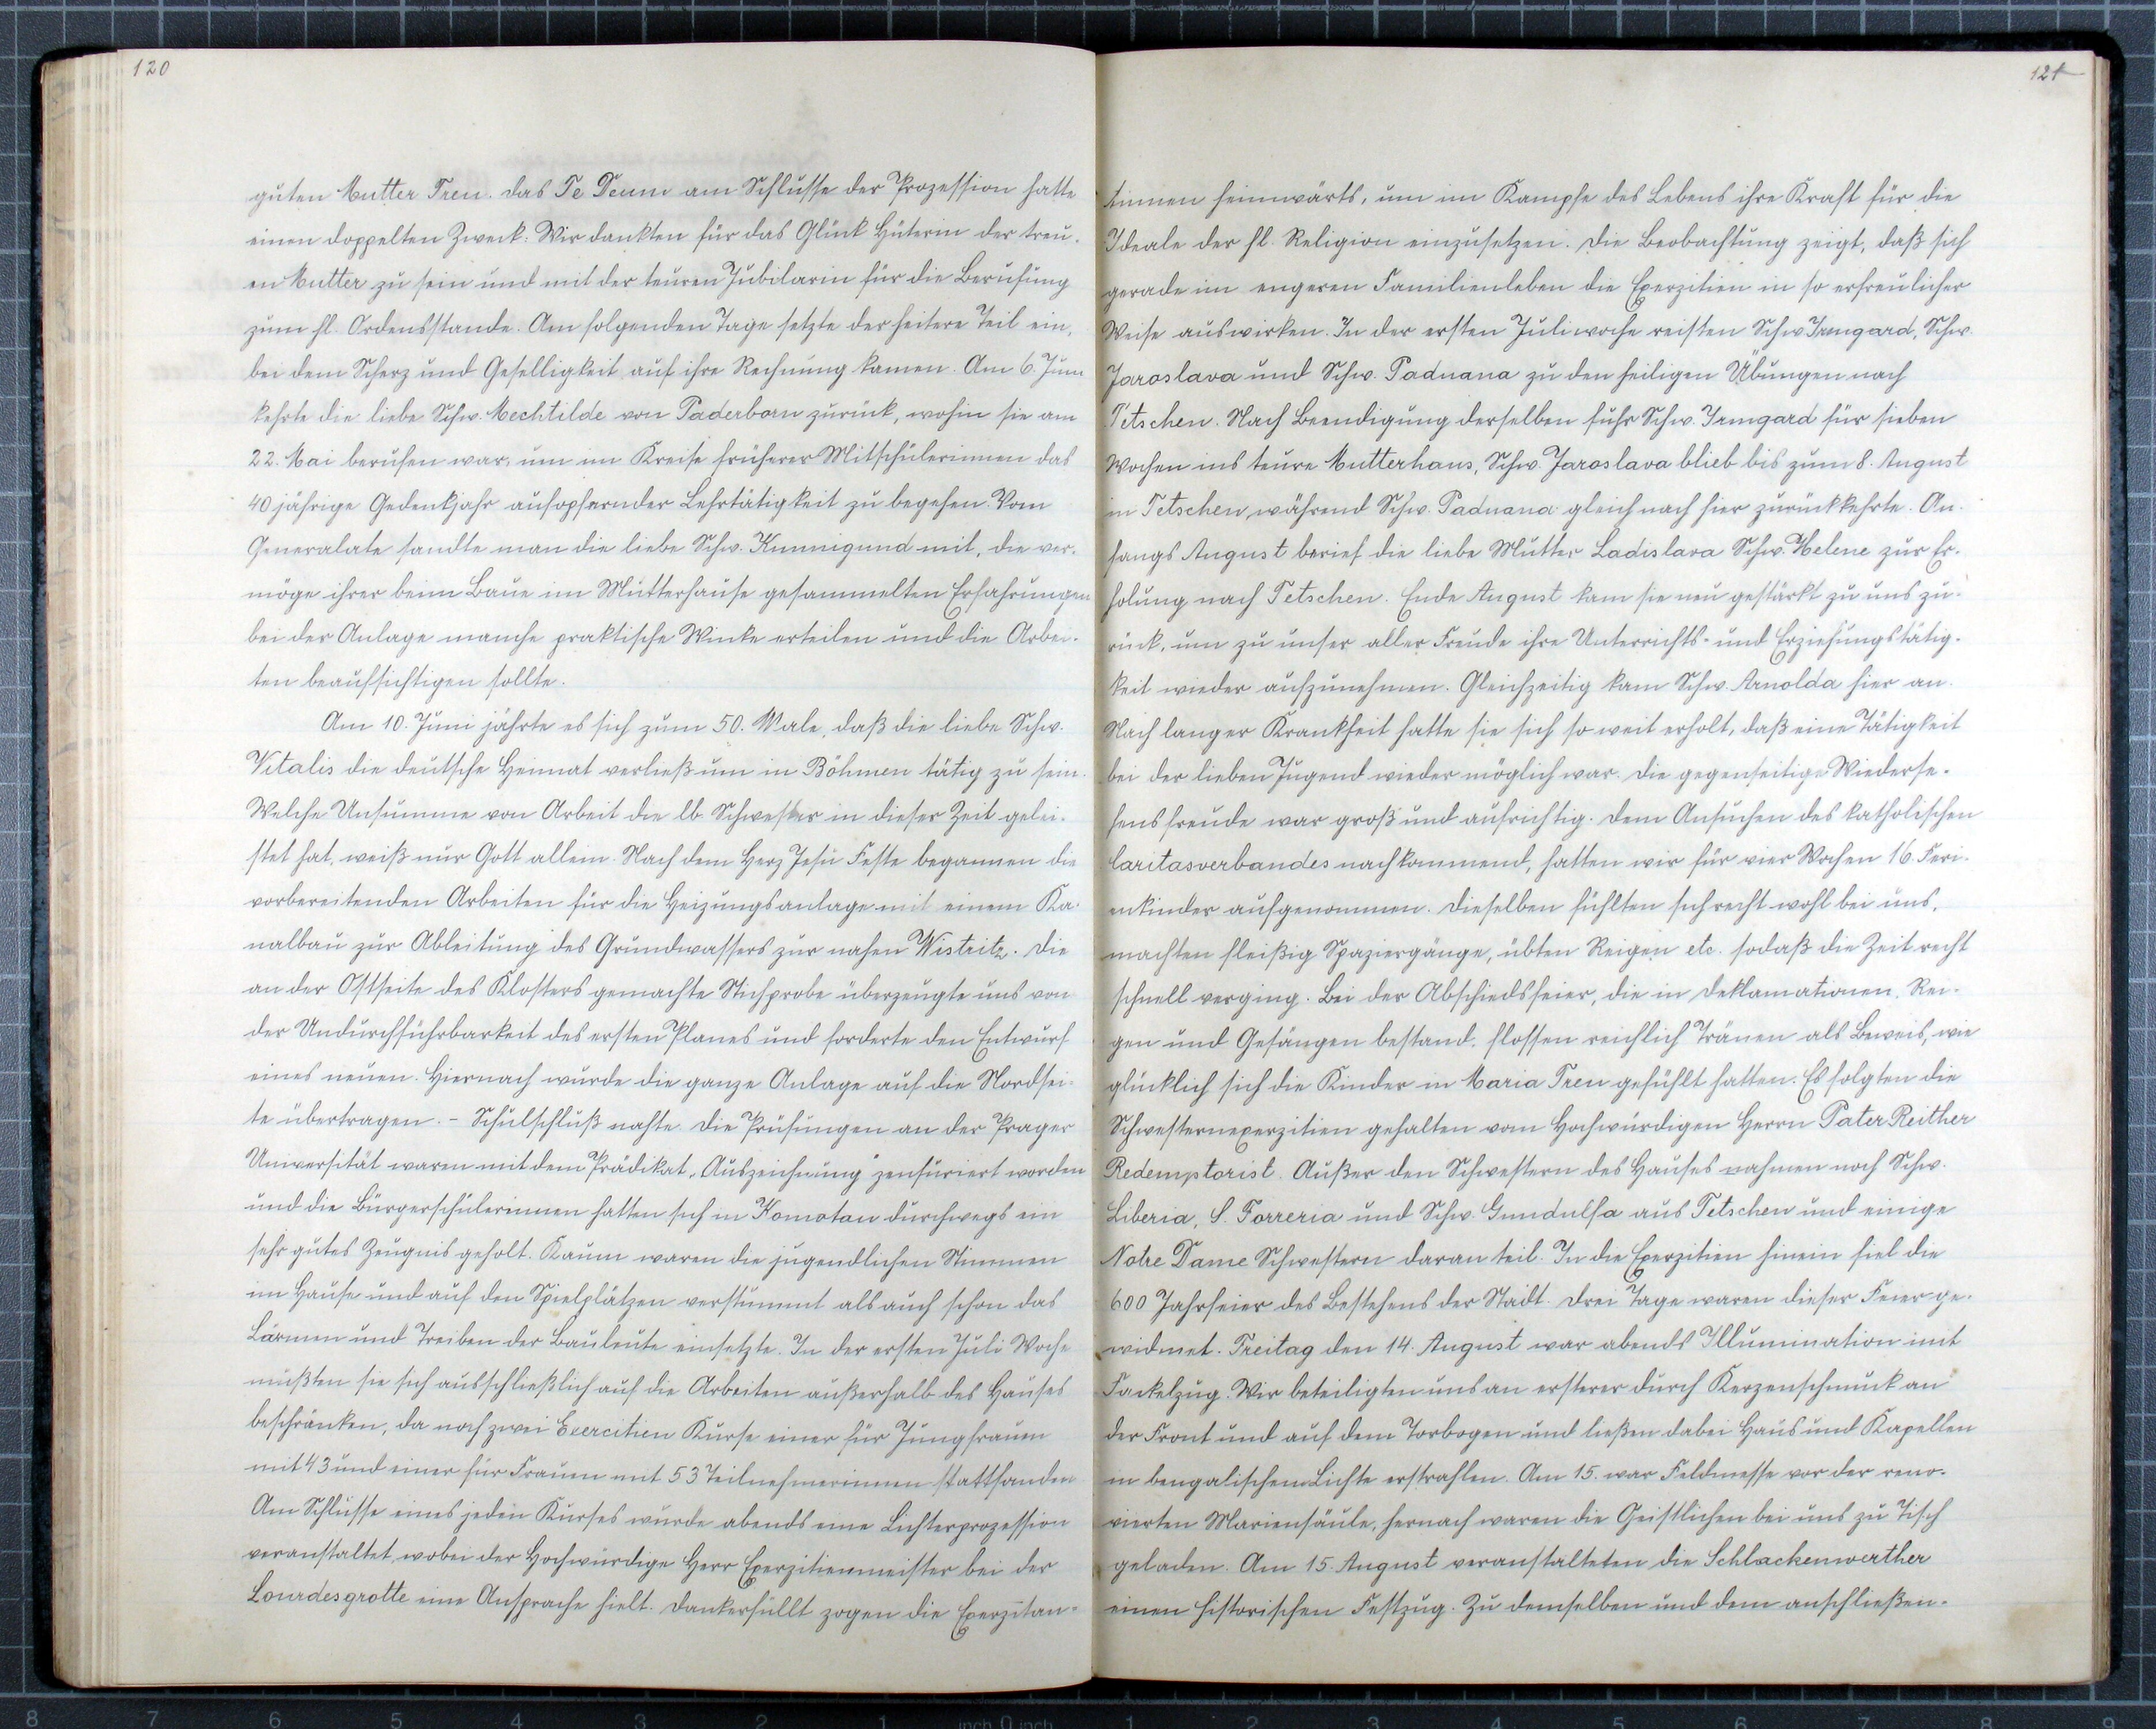 120
guten Mutter Treu. Das Te Deum am Schlusse der Prozession hatte
einen doppelten Zweck: Wir dankten für das Glück Hüterin der treu-
en Mutter zu sein und mit der teuren Jubilarin für die Berufung
zum hl. Ordensstande. Am folgenden Tage setzte der heitere Teil ein,
bei dem Scherz und Geselligkeit auf ihre Rechnung kamen. Am 6. Juni
kehrte die liebe Schw. Mechtilde von Paderborn zurück, wohin sie am
22. Mai berufen war, um im Kreise früherer Mitschülerinnen das
40 jährige Gedenkjahr aufopfernder Lehrtätigkeit zu begehen. Vom
Generalate sandte man die liebe Schw. Kunnigund mit, die ver-
möge ihrer beim Baue im Mutterhause gesammelten Erfahrungen
bei der Anlage manche praktische Winke erteilen und die Arbei-
ten beaufsichtigen sollte.
Am 10. Juni jährte es sich zum 50. Male, daß die liebe Schw.
Vitalis die deutsche Heimat verließ um in Böhmen tätig zu sein.
Welche Unsumme von Arbeit die lb. Schwester in dieser Zeit gelei-
stet hat, weiß nur Gott allein. Nach dem Herz Jesu Feste begannen die
vorbereitenden Arbeiten für die Heizungsanlage mit einem Ka-
nalbau zur Ableitung des Grundwassers zur nahen Wistritz. Die
an der Ostseite des Klosters gemachte Stichprobe überzeugte uns von
der Undurchführbarkeit des ersten Planes und forderte den Entwurf
eines neuen. Hiernach wurde die ganze Anlage auf die Nordsei-
te übertragen. - Schulschluß nahte. Die Prüfungen an der Prager
Universität waren mit dem Prädikat „Auszeichnung" zensuriert worden
und die Bürgerschülerinnen hatten sich in Komotau durchwegs ein
sehr gutes Zeugnis geholt. Kaum waren die jugendlichen Stimmen
im Hause und auf den Spielplätzen verstummt als auch schon das
Lärmen und Treiben der Bauleute einsetzte. In der ersten Juli Woche
mußten sie sich ausschließlich auf die Arbeiten außerhalb des Hauses
beschränken, da noch zwei Exercitien Kurse einer für Jungfrauen
mit 43 und einer für Frauen mit 53 Teilnehmerinnen stattfanden.
Am Schlusse eines jeden Kurses wurde abends eine Lichterprozession
veranstaltet, wobei der Hochwürdige Herr Exerzitienmeister bei der
Lourdesgrotte eine Ansprache hielt. Dankerfüllt zogen die Exerzitan-
121
tinnen heimwärts, um im Kampfe des Lebens ihre Kraft für die
Ideale der hl. Religion einzusetzen. Die Beobachtung zeigt, daß sich
gerade im engeren Familienleben die Exerzitien in so erfreulicher
Weise auswirken. In der ersten Juliwoche reisten Schw. Irmgard, Schw.
Jaroslava und Schw. Paduana zu den heiligen Übungen nach
Tetschen. Nach Beendigung derselben fuhr Schw. Irmgard für sieben
Wochen ins teure Mutterhaus, Schw. Jaroslava blieb bis zum 8. August
in Tetschen während Schw. Paduana gleich nach hier zurückkehrte. An-
fangs August berief die liebe Mutter Ladislava Schw. Helene zur Er-
holung nach Tetschen. Ende August kam sie neu gestärkt zu uns zu-
rück, um zu unser aller Freude ihre Unterrichts- und Erziehungstätig-
keit wieder aufzunehmen. Gleichzeitig kam Schw. Arnolda hier an.
Nach langer Krankheit hatte sie sich so weit erholt, daß eine Tätigkeit
bei der lieben Jugend wieder möglich war. Die gegenseitige Wiederse-
hensfreude war groß und aufrichtig. Dem Ansuchen des katholischen
Caritasverbandes nachkommend, hatten wir für vier Wochen 16 Feri-
enkinder aufgenommen. Dieselben fühlten sich recht wohl bei uns,
machten fleißig Spaziergänge, übten Reigen etc. sodaß die Zeit recht
schnell verging. Bei der Abschiedsfeier, die in Deklamationen, Rei-
gen und Gesängen bestand, flossen reichlich Tränen als Beweis, wie
glücklich sich die Kinder in Maria Treu gefühlt hatten. Es folgten die
Schwesternexerzitien gehalten vom Hochwürdigen Herrn Pater Reither
Redemptorist. Außer den Schwestern des Hauses nahmen noch Schw.
Liberia, S. Forreria und Schw. Gundulfa aus Tetschen und einige
Notre Dame Schwestern daran teil. In die Exerzitien hinein fiel die
600 Jahrfeier des Bestehens der Stadt. Drei Tage waren dieser Feier ge-
widmet. Freitag den 14. August war abends Illumination mit
Fackelzug. Wir beteiligten uns an ersterer durch Kerzenschmuck an
der Front und auf dem Torbogen und ließen dabei Haus und Kapellen
in bengalischem Lichte erstrahlen. Am 15. war Feldmesse vor der reno-
vierten Mariensäule, hernach waren die Geistlichen bei uns zu Tisch
geladen. Am 15. August veranstalteten die Schlackenwerther
einen historischen Festzug. Zu demselben und dem anschließen-